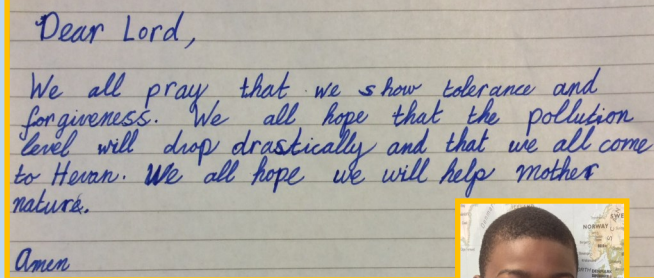 Dear Lord,
We all pray that we show tolerance and
forgiveness. We all hope that the pollution
level will drop drastically and that we all come
to Hevan. We all hope we will help mother
nature.
Amen
NORWAY